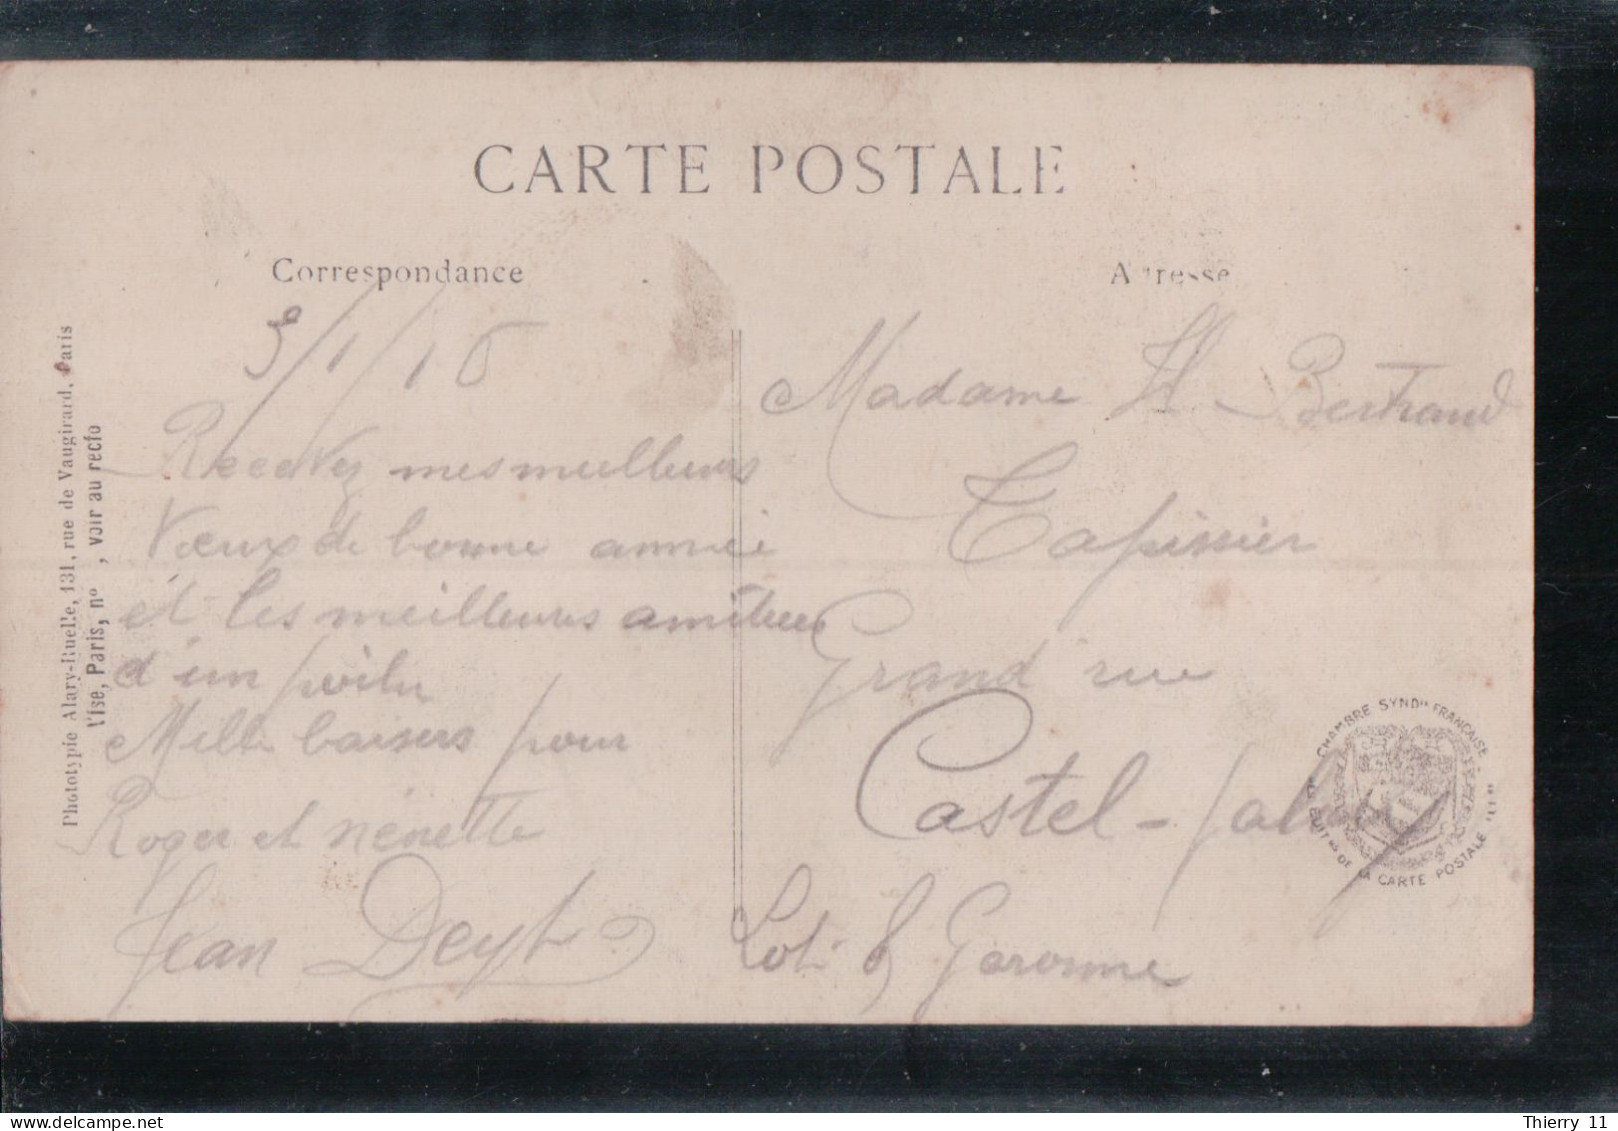 CARTE POSTALE
Correspondance
Adresse
Phototypie Alary-Ruelle, 131, rue de Vaugirard, Paris
Vise, Paris, nº , voir au recto
3/1/16
Recevez mes meilleurs
Vœux de bonne année
et les meilleures amitiées
d'un poilu
Mille baisers pour
Roger et nénette
Jean
Madame H Bertrand
Tapissier
Grand rue
Castel-jaloux
Lot & Garonne
CHAMBRE SYNDLE FRANÇAISE
DE LA CARTE POSTALE
Thierry 11